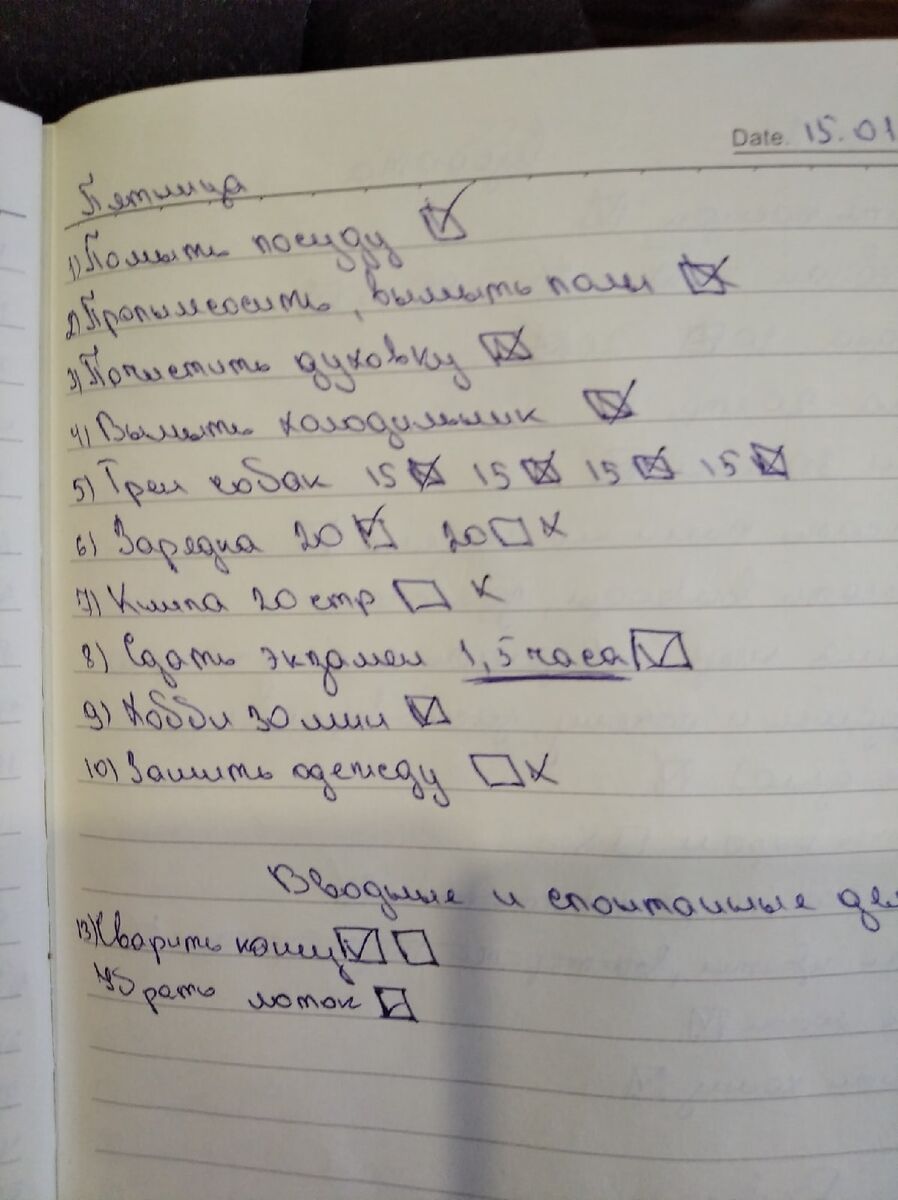 Date. 15.01
Пятница
1) Помыть посуду ☑
2) Пропылесосить, вымыть полы ☑
3) Почистить духовку ☑
4) Вымыть холодильник ☑
5) Трен собак 15 ☑ 15 ☑ 15 ☑ 15 ☑
6) Зарядка 20 ☑ 20 ☐ x
7) Книга 20 стр ☐ x
8) Сдать экзамен 1,5 часа ☑
9) Хобби 30 мин ☑
10) Зашить одежду ☐ x
Вводные и спонтанные дел
13) Сварить кашу ☑ ☐
Убрать лоток ☑